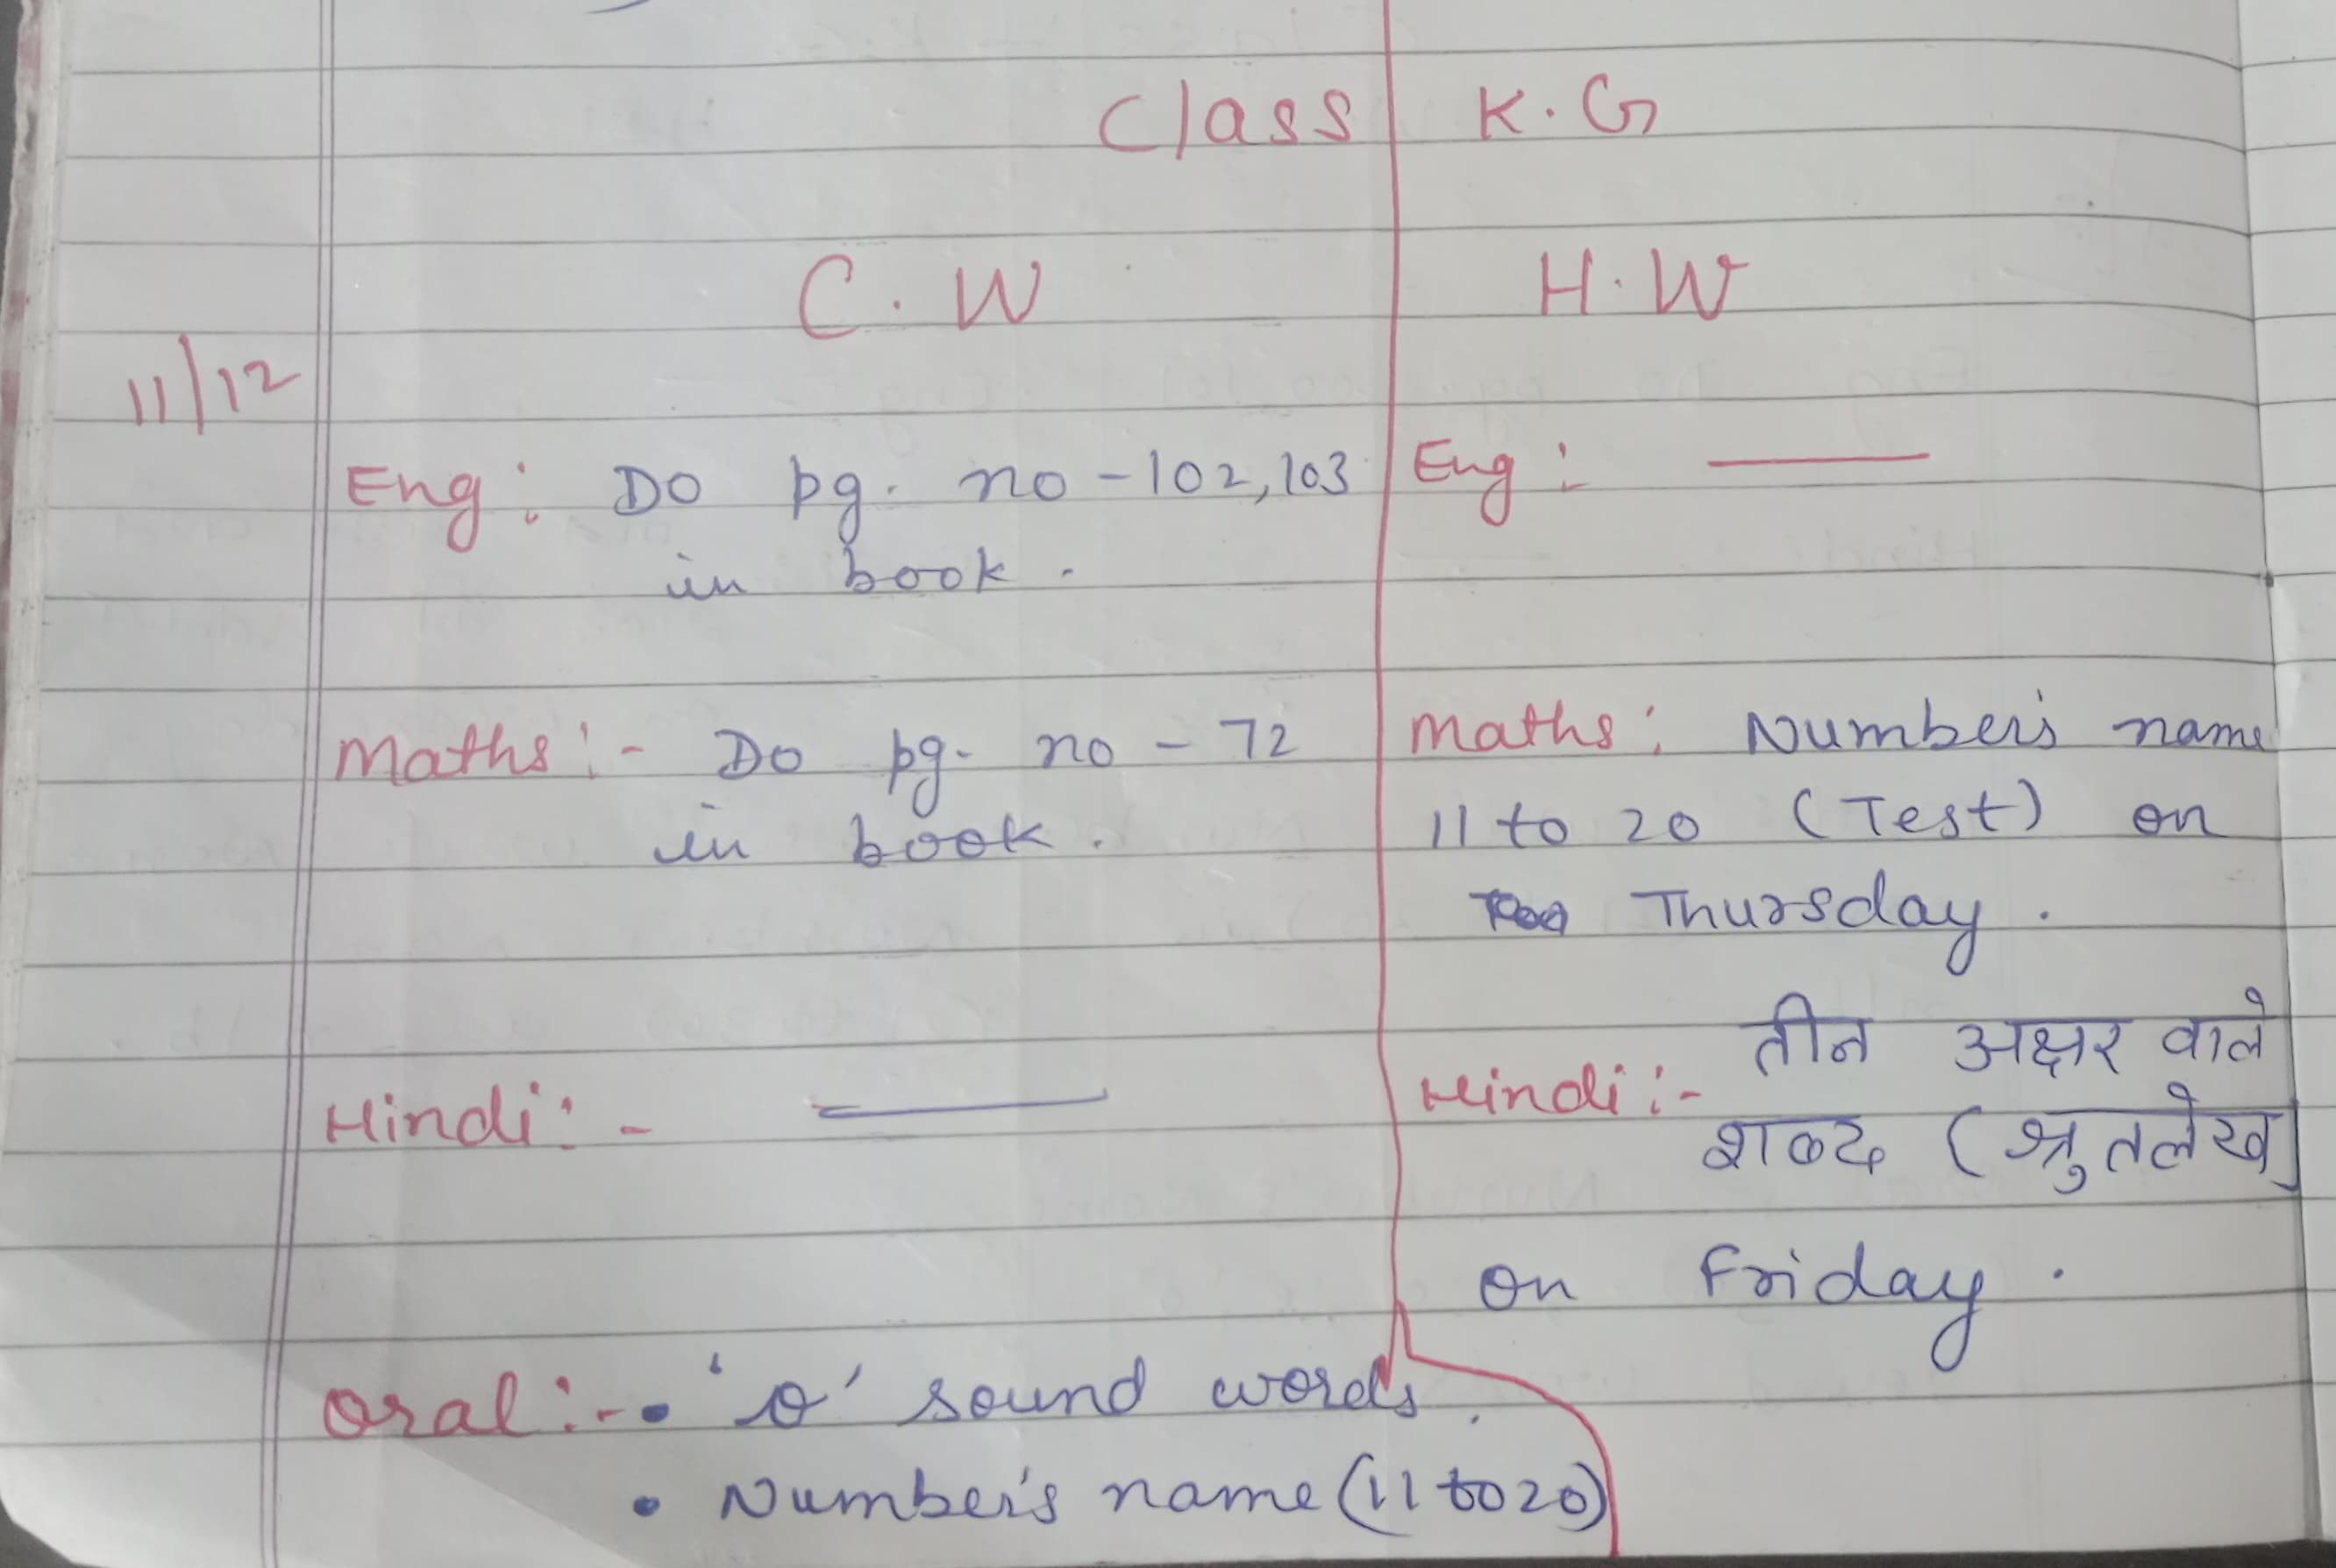 Class K.G
C.W
H.W
11/12
Eng: Do pg. no - 102, 103
in book.
Eng:
Maths:- Do pg. no - 72
in book.
Maths: Number's name
11 to 20 (Test) on
Thursday.
Hindi:-
Hindi:- तीन अक्षर वाले
शब्द (श्रुतलेख)
on Friday.
Oral:- • 'o' sound words.
• Number's name (11 to 20)